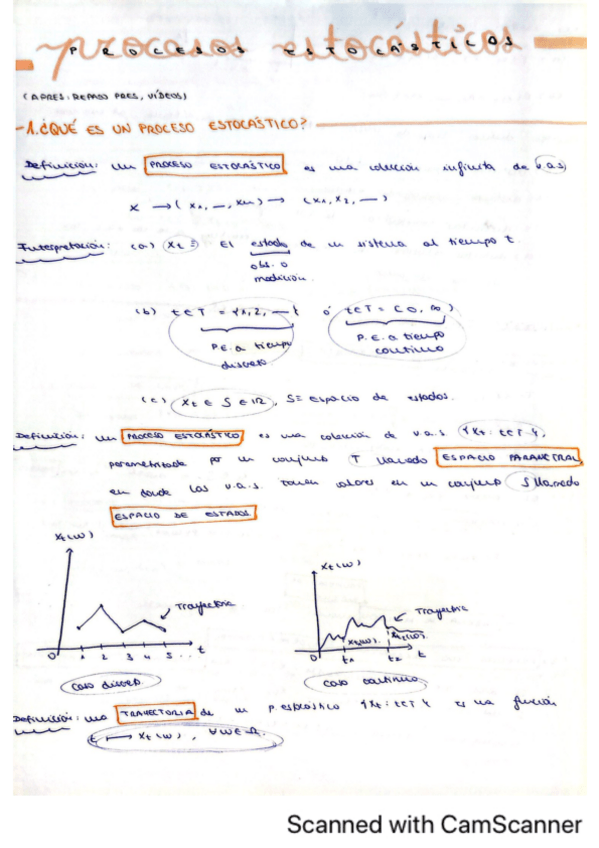 procesos estocásticos
PROCESOS ESTOCÁSTICOS
(APRES: REPASO PRES, VÍDEOS)
-1.¿QUÉ ES UN PROCESO ESTOCÁSTICO?
Definición: un PROCESO ESTOCÁSTICO es una colección infinita de v.a.s
X → (X1, —, Xn) → (X1, X2, —)
Interpretación: (a) Xt = El estado de un sistema al tiempo t
obs. o
medición.
(b) t ∈ T = {1, 2, — } ó t ∈ T = [0, ∞)
P.E. a tiempo
discreto
P.E. a tiempo
continuo
(c) Xt ∈ S ⊆ R, S = espacio de estados.
Definición: un PROCESO ESTOCÁSTICO es una colección de v.a.s {Xt: t∈T},
parametrizada por un conjunto T llamado ESPACIO PARAMETRAL,
en donde las v.a.s. toman valores en un conjunto S llamado
ESPACIO DE ESTADOS.
Xt(ω)
Trayectoria
0 1 2 3 4 5 ... t
caso discreto
Xt(ω)
Trayectoria
Xt1(ω). Xt2(ω).
0 t1 t2 t
caso continuo
Definición: una TRAYECTORIA de un p. estocástico {Xt: t∈T} es una función
t ⟼ Xt(ω), ∀ω∈Ω.
Scanned with CamScanner